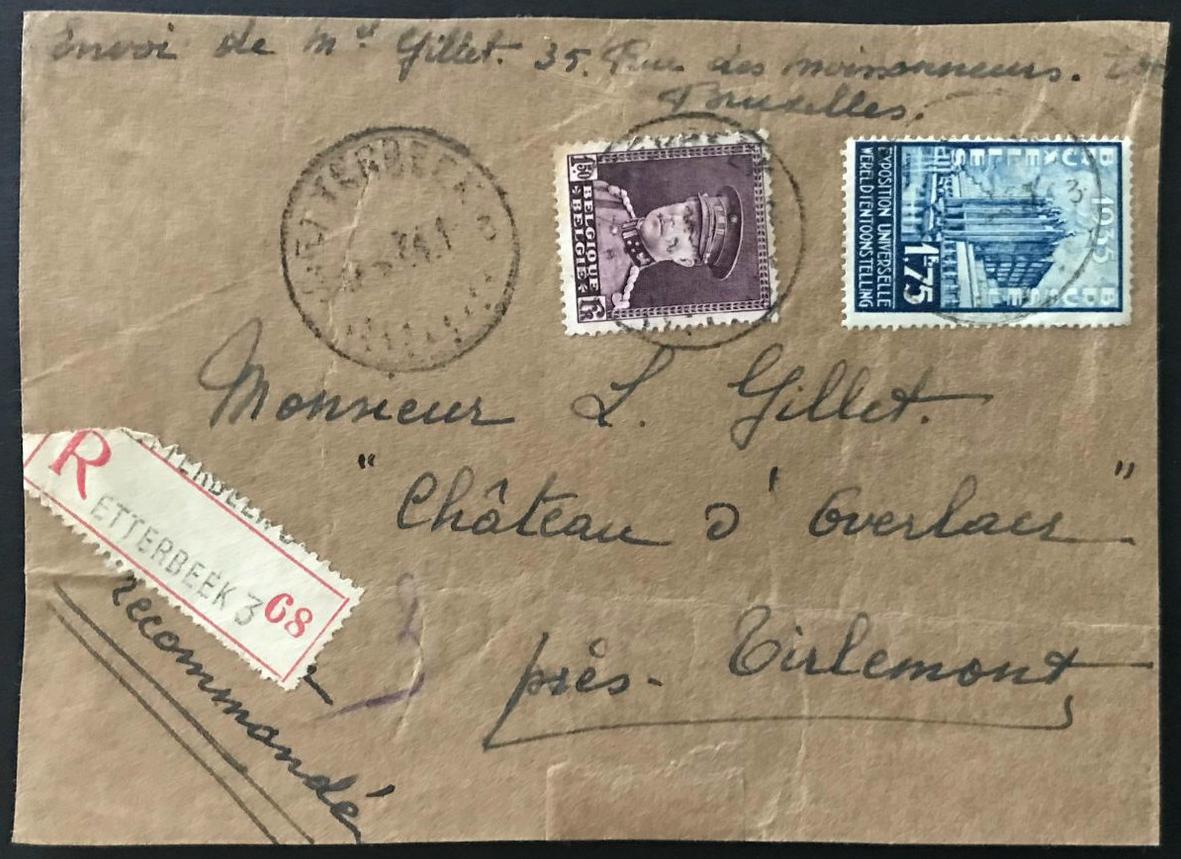 Envoi de Mr Gillet. 35. Rue des Moissonneurs.
Bruxelles.
ETTERBEEK
1F50
BELGIQUE
BELGIE
1F50
1935
BRUXELLES
EXPOSITION UNIVERSELLE
WERELDTENTOONSTELLING
1F.75
Monsieur L. Gillet.
"Château d'Overlaer"
près. Tirlemont
R
ETTERBEEK 3
68
ETTERBEEK 3
recommandé